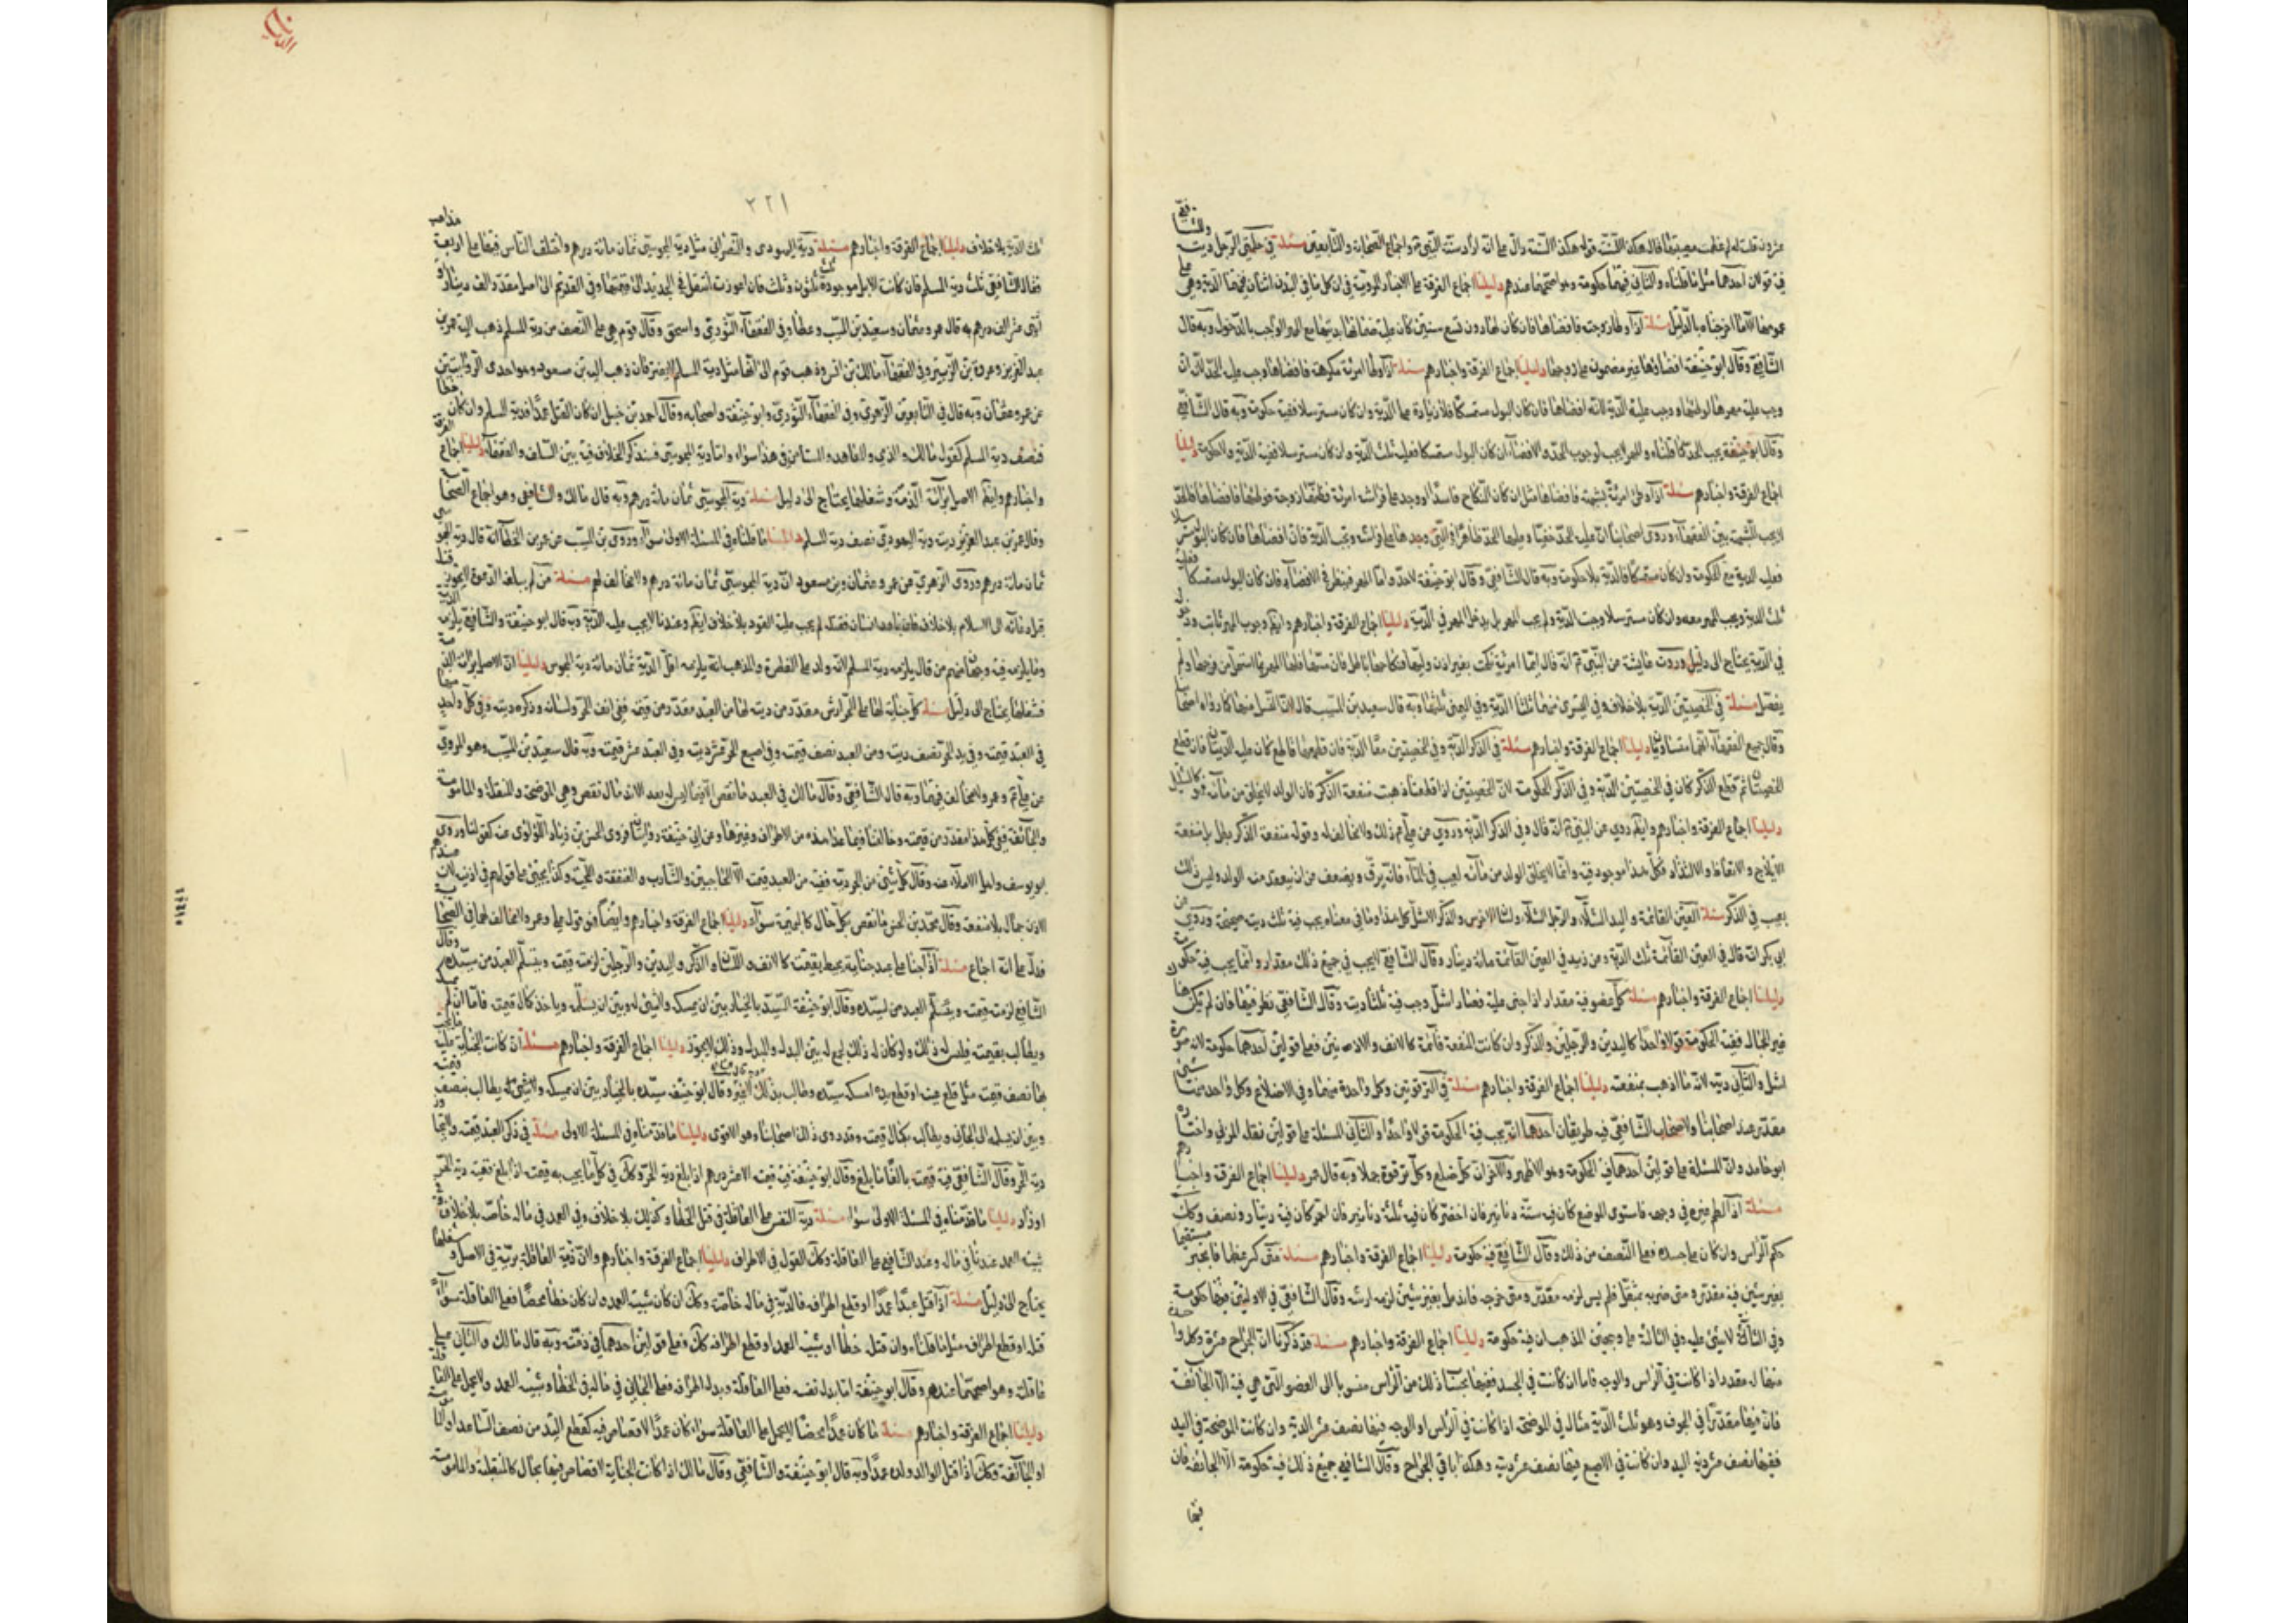 عشرون قلت له لم عظمت مصيبتها قال هكذا السنة قوله هكذا السنة دال على انه اراد سنة النبي واجماع الصحابة والتابعين مسئلة في حلمتي الرجل ديته وللشافعي
فيه قولان احدهما مثل ما قلناه والثاني فيهما حكومة وهو اصحهما عندهم دليلنا اجماع الفرقة على الاخبار المروية في ان كل ما في البدن اثنان ففيهما الدية وهي على
عمومها الا ما اخرجناه بالدليل مسئلة اذا وطئ زوجته فافضاها فان كان لها دون تسع سنين كان عليه ضمانها بديتها مع المهر الواجب بالدخول وبه قال
الشافعي وقال ابو حنيفة افضاؤها غير مضمون على زوجها دليلنا اجماع الفرقة واخبارهم مسئلة اذا وطئ امرئة مكرهة فافضاها وجب عليه الحد لانه زان
وجب عليه مهرها لوطئها ووجب عليه الدية لانه افضاها فان كان البول مستمسكا فلا زيادة على الدية وان كان مسترسلا ففيه حكومة وبه قال الشافعي
وقال ابو حنيفة يجب الحد كما قلناه والمهر لا يجب لوجوب الحد والافضاء ان كان البول مستمسكا فعليه ثلث الدية وان كان مسترسلا ففيه الدية ولا حكومة دليلنا
اجماع الفرقة واخبارهم مسئلة اذا وطئ امرئة بشبهة فافضاها مثل ان كان النكاح فاسدا او وجد على فراشه امرئة فظنها زوجته فوطئها فافضاها فالحد
لا يجب للشبهة بين الفقهاء وروى اصحابنا ان عليه الحد خفيا وعليها الحد ظاهرا في التي وجدها على فراشه وتجب الدية فان افضاها فان كان البول مسترسلا
فعليه الدية مع الحكومة وان كان مستمسكا فالدية بلا حكومة وبه قال الشافعي وقال ابو حنيفة لا حد واما المهر فينظر في الافضاء فان كان البول مستمسكا فعليه
ثلث الدية ويجب المهر معه وان كان مسترسلا وجبت الدية ولم يجب المهر بل يدخل المهر في الدية دليلنا اجماع الفرقة واخبارهم وايضا وجوب المهر ثابت ودخوله
في الدية يحتاج الى دليل وروت عايشة عن النبي انه قال ايما امرئة نكحت بغير اذن وليها فنكاحها باطل فان مسها فلها المهر بما استحل من فرجها ولم
يفصل مسئلة في الخصيتين الدية بلا خلاف وفي اليسرى منهما ثلثا الدية وفي اليمنى ثلثها وبه قال سعيد بن المسيب قال لان النسل منها كما رواه اصحابنا
وقال جميع الفقهاء انهما متساويتان دليلنا اجماع الفرقة واخبارهم مسئلة في الذكر الدية وفي الخصيتين معا الدية فان قطعهما قاطع كان عليه الديتان فان قطع
الخصيتان ثم قطع الذكر كان في الخصيتين الدية وفي الذكر الحكومة لان الخصيتين اذا قطعتا ذهبت منفعة الذكر فان الولد لا يخلق من مائه فهو كالشلل
دليلنا اجماع الفرقة واخبارهم وايضا روي عن النبي انه قال وفي الذكر الدية وروي عن علي ذلك ولا مخالف له وقوله منفعة الذكر بطل بل منفعته
الايلاج والانعاظ والالتذاذ فكل هذا موجود فيه وانما لا يخلق الولد من مائه لعيب في الماء فانه يرق ويضعف عن ان ينعقد منه الولد وليس ذلك
بعيب في الذكر مسئلة العين القائمة واليد الشلاء والرجل الشلاء ولسان الاخرس والذكر الاشل كل هذا وما في معناه يجب فيه ثلث ديته صحيحة وروي عن
ابي بكر انه قال في العين القائمة ثلث الدية وعن زيد في العين القائمة مائة دينار وقال الشافعي لا يجب في جميع ذلك مقدار وانما يجب فيه حكومة
دليلنا اجماع الفرقة واخبارهم مسئلة كل عضو فيه مقدار اذا جنى عليه فصار اشل وجب فيه ثلثا ديته وقال الشافعي نظر فيها فان لم تكن هناك
غير الجمال ففيه الحكومة قولا واحدا كاليدين والرجلين والذكر وان كانت المنفعة قائمة كالانف والاذنين فعلى قولين احدهما حكومة لانه صيره
اشل والثاني ديته لانه ما اذهب بمنفعته دليلنا اجماع الفرقة واخبارهم مسئلة في الترقوتين وكل واحدة منهما وفي الاضلاع وكل واحد منها شيء
مقدر عند اصحابنا ولاصحاب الشافعي فيه طريقان احدهما انه يجب فيه الحكومة قولا واحدا والثاني المسئلة على قولين نقله المزني واختاره
ابو حامد وان المسئلة على قولين احدهما فيه الحكومة وهو الاظهر والاخر ان كل ضلع وكل ترقوة جملا وبه قال عمر دليلنا اجماع الفرقة واخبارهم
مسئلة اذا لطم غيره في وجهه فاسود الموضع كان فيه ستة دنانير فان اخضر كان فيه ثلثة دنانير فان احمر كان فيه دينار ونصف وكك
حكم الراس وان كان على جسده فعلى النصف من ذلك وقال الشافعي فيه حكومة دليلنا اجماع الفرقة واخبارهم مسئلة متى كسر عظما فانجبر مستقيما
بغير شين فيه مقدر ومتى ضربه بمثقل فلم يشن لزمه مقدر ومتى جرحه فاندمل بغير شين لزمه ارشه وقال الشافعي في الاوليين فيها حكومة
وفي الثالثة لا شيء عليه وفي الثالثة على وجهين المذهب ان فيه حكومة دليلنا اجماع الفرقة واخبارهم مسئلة قد ذكرنا ان الجراح عشرة وكل واحدة
منها له مقدر اذا كانت في الراس والوجه فاما ان كانت في الجسد ففيها بحساب ذلك من الراس منسوبا الى العضو التي هي فيه الا الجائفة
فان فيها مقدرا في الجوف وهو ثلث الدية مثال في الموضحة اذا كانت في الراس او الوجه فيها نصف عشر الدية وان كانت الموضحة في اليد
ففيها نصف عشر دية اليد وان كانت في الاصبع فيها نصف عشر ديته وهكذا باقي الجراح وقال الشافعي جميع ذلك فيه حكومة الا الجايفة فان
فيها
٣٢١
ثلث الدية بلا خلاف دليلنا اجماع الفرقة واخبارهم مسئلة دية اليهودي والنصراني مثل دية المجوسي ثمان مائة درهم واختلف الناس فيها على اربعة مذاهب
فقال الشافعي ثلث دية المسلم فان كانت الابل موجودة ثلثة وثلثون وثلث فان اعوزت انتقل في الجديد الى قيمتها وفي القديم الى اصل مقدر الف دينار او
اثنى عشر الف درهم به قال عمر وعثمان وسعيد بن المسيب وعطا وفي الفقهاء الثوري واسحق وقال قوم هي على النصف من دية المسلم ذهب اليه عمر بن
عبد العزيز وعروة بن الزبير وفي الفقهاء مالك بن انس وذهب قوم الى انها مثل دية المسلم ذهب اليه بن مسعود وهو احدى الروايتين
عن عمر وعثمان وبه قال في التابعين الزهري وفي الفقهاء الثوري وابو حنيفة واصحابه وقال احمد بن حنبل ان كان القتل عمدا فدية المسلم وان كان خطا
فنصف دية المسلم كقول مالك والذمي والمعاهد والمستامن في هذا سواء واما دية المجوسي فسنذكر الخلاف فيه بين السلف والفقهاء دليلنا اجماع الفرقة
واخبارهم وايضا الاصل براءة الذمة وشغلها يحتاج الى دليل مسئلة دية المجوسي ثمان مائة درهم وبه قال مالك والشافعي وهو اجماع الصحابة
وقال عمر بن عبد العزيز ديته دية اليهودي نصف دية المسلم دليلنا ما قلناه في المسئلة الاولى سواء وروى بن المسيب عن عمر بن الخطاب انه قال دية المجوسي
ثمان مائة درهم وروى الزهري عن عمر وعثمان وبن مسعود ان دية المجوسي ثمان مائة درهم ولا مخالف لهم مسئلة من لم يبلغه الدعوة لا يجوز قتله
قبل دعائه الى الاسلام بلا خلاف فان بادر انسان فقتله لم يجب عليه القود بلا خلاف ايضا وعندنا لا يجب عليه الدية وبه قال ابو حنيفة والشافعي يلزمه الدية
وما يلزمه فيه وجهان منهم من قال يلزمه دية المسلم لانه ولد على الفطرة والمذهب انه يلزمه اقل الدية ثمان مائة دية المجوس دليلنا ان الاصل براءة الذمة
فشغلها يحتاج الى دليل مسئلة كل جناية لها على الحر ارش مقدر من ديته لها من العبد مقدر من قيمته ففي انف الحر ولسانه وذكره ديته وفي كل واحد منها
في العبد قيمته وفي يد الحر نصف ديته ومن العبد نصف قيمته وفي اصبع الحر عشر ديته وفي العبد عشر قيمته وبه قال سعيد بن المسيب وهو المروي
عن علي وعمر ولا مخالف فيها وبه قال الشافعي وقال مالك في العبد ما نقص الا فيما ليس له بعد الاندمال نقص وهي الموضحة والمنقلة والمامومة
والجائفة ففي كل هذا مقدر من قيمته وخالفنا فيما عدا هذه من الاطراف وغيرها وعن ابي حنيفة روايتان فروى الحسن بن زياد اللؤلؤي عنه كقولنا وروى
ابو يوسف واهل الاملاء عنه وقال كل شيء من الحر ديته ففيه من العبد قيمته الا الحاجبين والشارب والعنفقة واللحية وكذا يجيء على قولهم في اذنيه لان عندهم
الاذن جمال بلا منفعة وقال محمد بن الحسن ما نقص بكل حال كالبهيمة سواء دليلنا اجماع الفرقة واخبارهم وايضا هو قول علي وعمر ولا مخالف لهما في الصحابة
فدل على انه اجماع مسئلة اذا جنا على عبد جناية يحيط بقيمته كالانف واللسان والذكر واليدين والرجلين لزمت قيمته ويتسلم العبد من سيده وقال
الشافعي لزمت قيمته ويتسلم العبد من سيده وقال ابو حنيفة السيد بالخيار بين ان يمسكه ولا شيء له وبين ان يسلمه وياخذ كمال قيمته فاما ان يمسكه
ويطالب بقيمته فليس له ذلك ولو كان له ذلك لجمع له بين البدل والمبدل وذلك لا يجوز دليلنا اجماع الفرقة واخبارهم مسئلة ان كانت الجناية عليه
بها نصف قيمته مثل قلع عينه او قطع يده امسكه سيده وطالب بذلك القدر وقال ابو حنيفة سيده بالخيار بين ان يمسكه ولا شيء له يطالب بنصف قيمته
وبين ان يسلمه الى الجاني ويطالب بكمال قيمته وقد روى ذلك اصحابنا وهو الاقوى دليلنا ما قدمناه في المسئلة الاولى مسئلة في ذكر العبد قيمته ولا يتجاوز
دية الحر وقال الشافعي فيه قيمته بالغا ما بلغ وقال ابو حنيفة فيه قيمته الا عشر دراهم اذا بلغ دية الحر وكك في كل ما يجب به قيمته اذا بلغ قيمته دية الحر
او زاد دليلنا ما قدمناه في المسئلة الاولى سواء مسئلة دية النفس على العاقلة في قتل الخطا وكذلك بلا خلاف وفي العمد في ماله خاصة بلا خلاف وفي
شبيه العمد عندنا في ماله وعند الشافعي على العاقلة وكك القول في الاطراف دليلنا اجماع الفرقة واخبارهم وان ذمة العاقلة بريئة في الاصل وشغلها
يحتاج الى دليل مسئلة اذا قتل عبدا عمدا او قطع اطرافه فالدية في ماله خاصة وكك ان كان شبيه العمد وان كان خطأ محضا فعلى العاقلة سواء
قتله او قطع اطرافه مثل ما قلناه وان قتله خطأ او شبيه العمد او قطع اطرافه كك فعلى قولين احدهما في ذمته وبه قال مالك والثاني على
عاقلته وهو اصحهما عندهم وقال ابو حنيفة اما بدل نفسه فعلى العاقلة وبدل اطرافه فعلى الجاني في ماله في الخطأ وشبيه العمد ولا يحمل على العاقلة
دليلنا اجماع الفرقة واخبارهم مسئلة ما كان عمدا محضا لا يحمل على العاقلة سواء كان عمدا لا قصاص فيه كقطع اليد من نصف الساعد او المامومة
او الجائفة وكك اذا قتل الوالد ولده عمدا وبه قال ابو حنيفة والشافعي وقال مالك اذا كانت الجناية لا قصاص فيها بحال كالمنقلة والمامومة